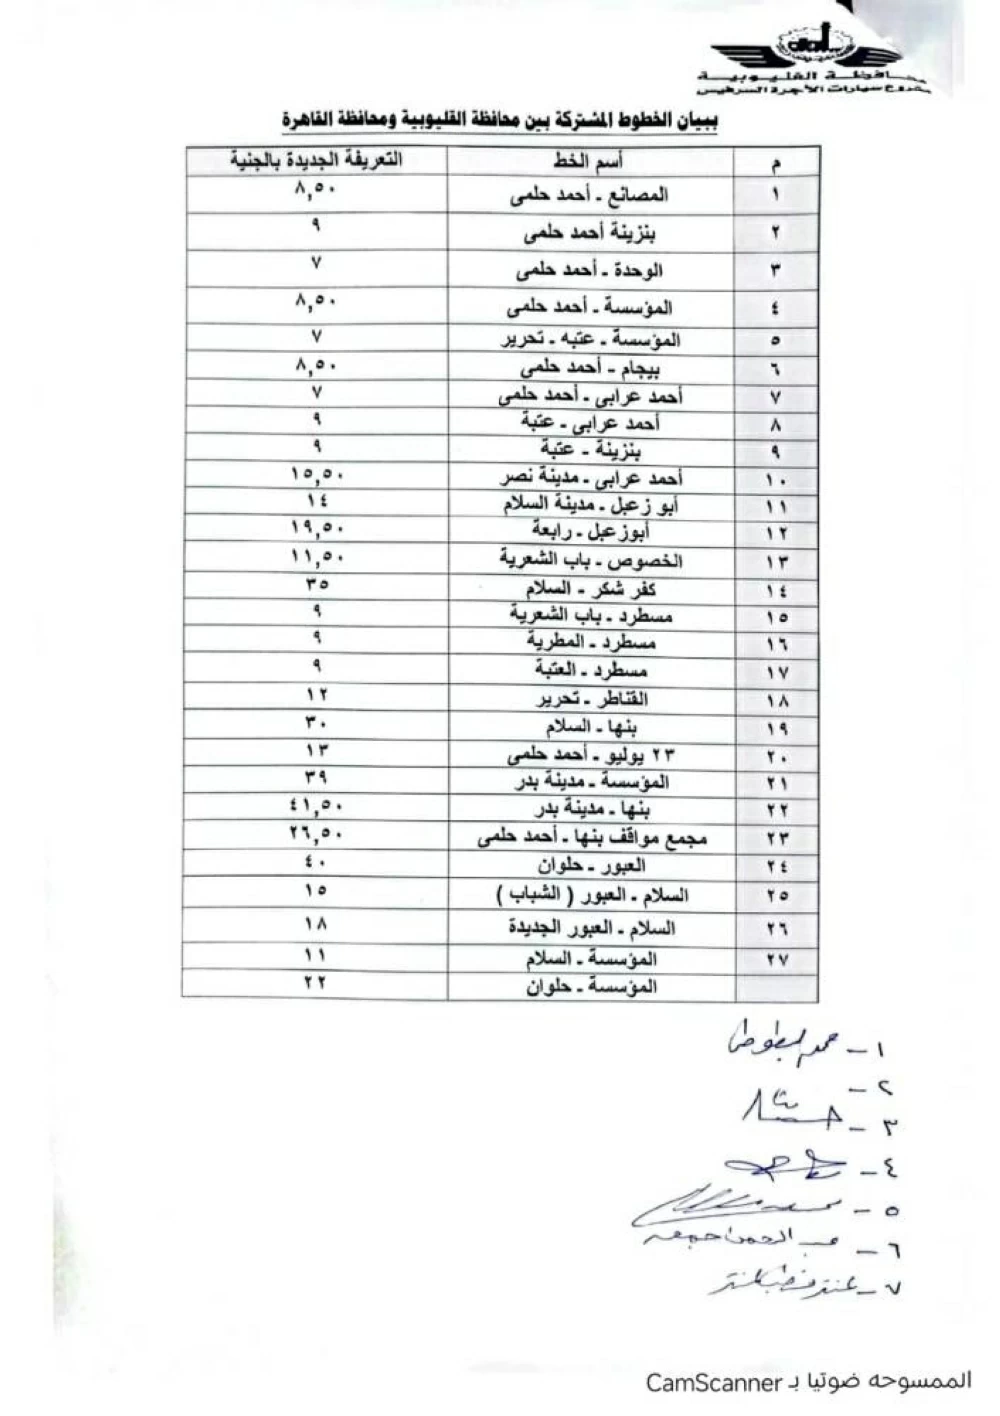 محافظة القليوبية
مشروع سيارات الأجرة السرفيس
ببيان الخطوط المشتركة بين محافظة القليوبية ومحافظة القاهرة
م أسم الخط التعريفة الجديدة بالجنية
١ المصانع - أحمد حلمى ٨,٥٠
٢ بنزينة أحمد حلمى ٩
٣ الوحدة - أحمد حلمى ٧
٤ المؤسسة - أحمد حلمى ٨,٥٠
٥ المؤسسة - عتبه - تحرير ٧
٦ بيجام - أحمد حلمى ٨,٥٠
٧ أحمد عرابى - أحمد حلمى ٧
٨ أحمد عرابى - عتبة ٩
٩ بنزينة - عتبة ٩
١٠ أحمد عرابى - مدينة نصر ١٥,٥٠
١١ أبو زعبل - مدينة السلام ١٤
١٢ أبوزعبل - رابعة ١٩,٥٠
١٣ الخصوص - باب الشعرية ١١,٥٠
١٤ كفر شكر - السلام ٣٥
١٥ مسطرد - باب الشعرية ٩
١٦ مسطرد - المطرية ٩
١٧ مسطرد - العتبة ٩
١٨ القناطر - تحرير ١٢
١٩ بنها - السلام ٣٠
٢٠ ٢٣ يوليو - أحمد حلمى ١٣
٢١ المؤسسة - مدينة بدر ٣٩
٢٢ بنها - مدينة بدر ٤١,٥٠
٢٣ مجمع مواقف بنها - أحمد حلمى ٢٦,٥٠
٢٤ العبور - حلوان ٤٠
٢٥ السلام - العبور ( الشباب ) ١٥
٢٦ السلام - العبور الجديدة ١٨
٢٧ المؤسسة - السلام ١١
المؤسسة - حلوان ٢٢
١-
٢-
٣-
٤-
٥-
٦- عبد الرحمن جمعه
٧-
الممسوحه ضوئيا بـ CamScanner